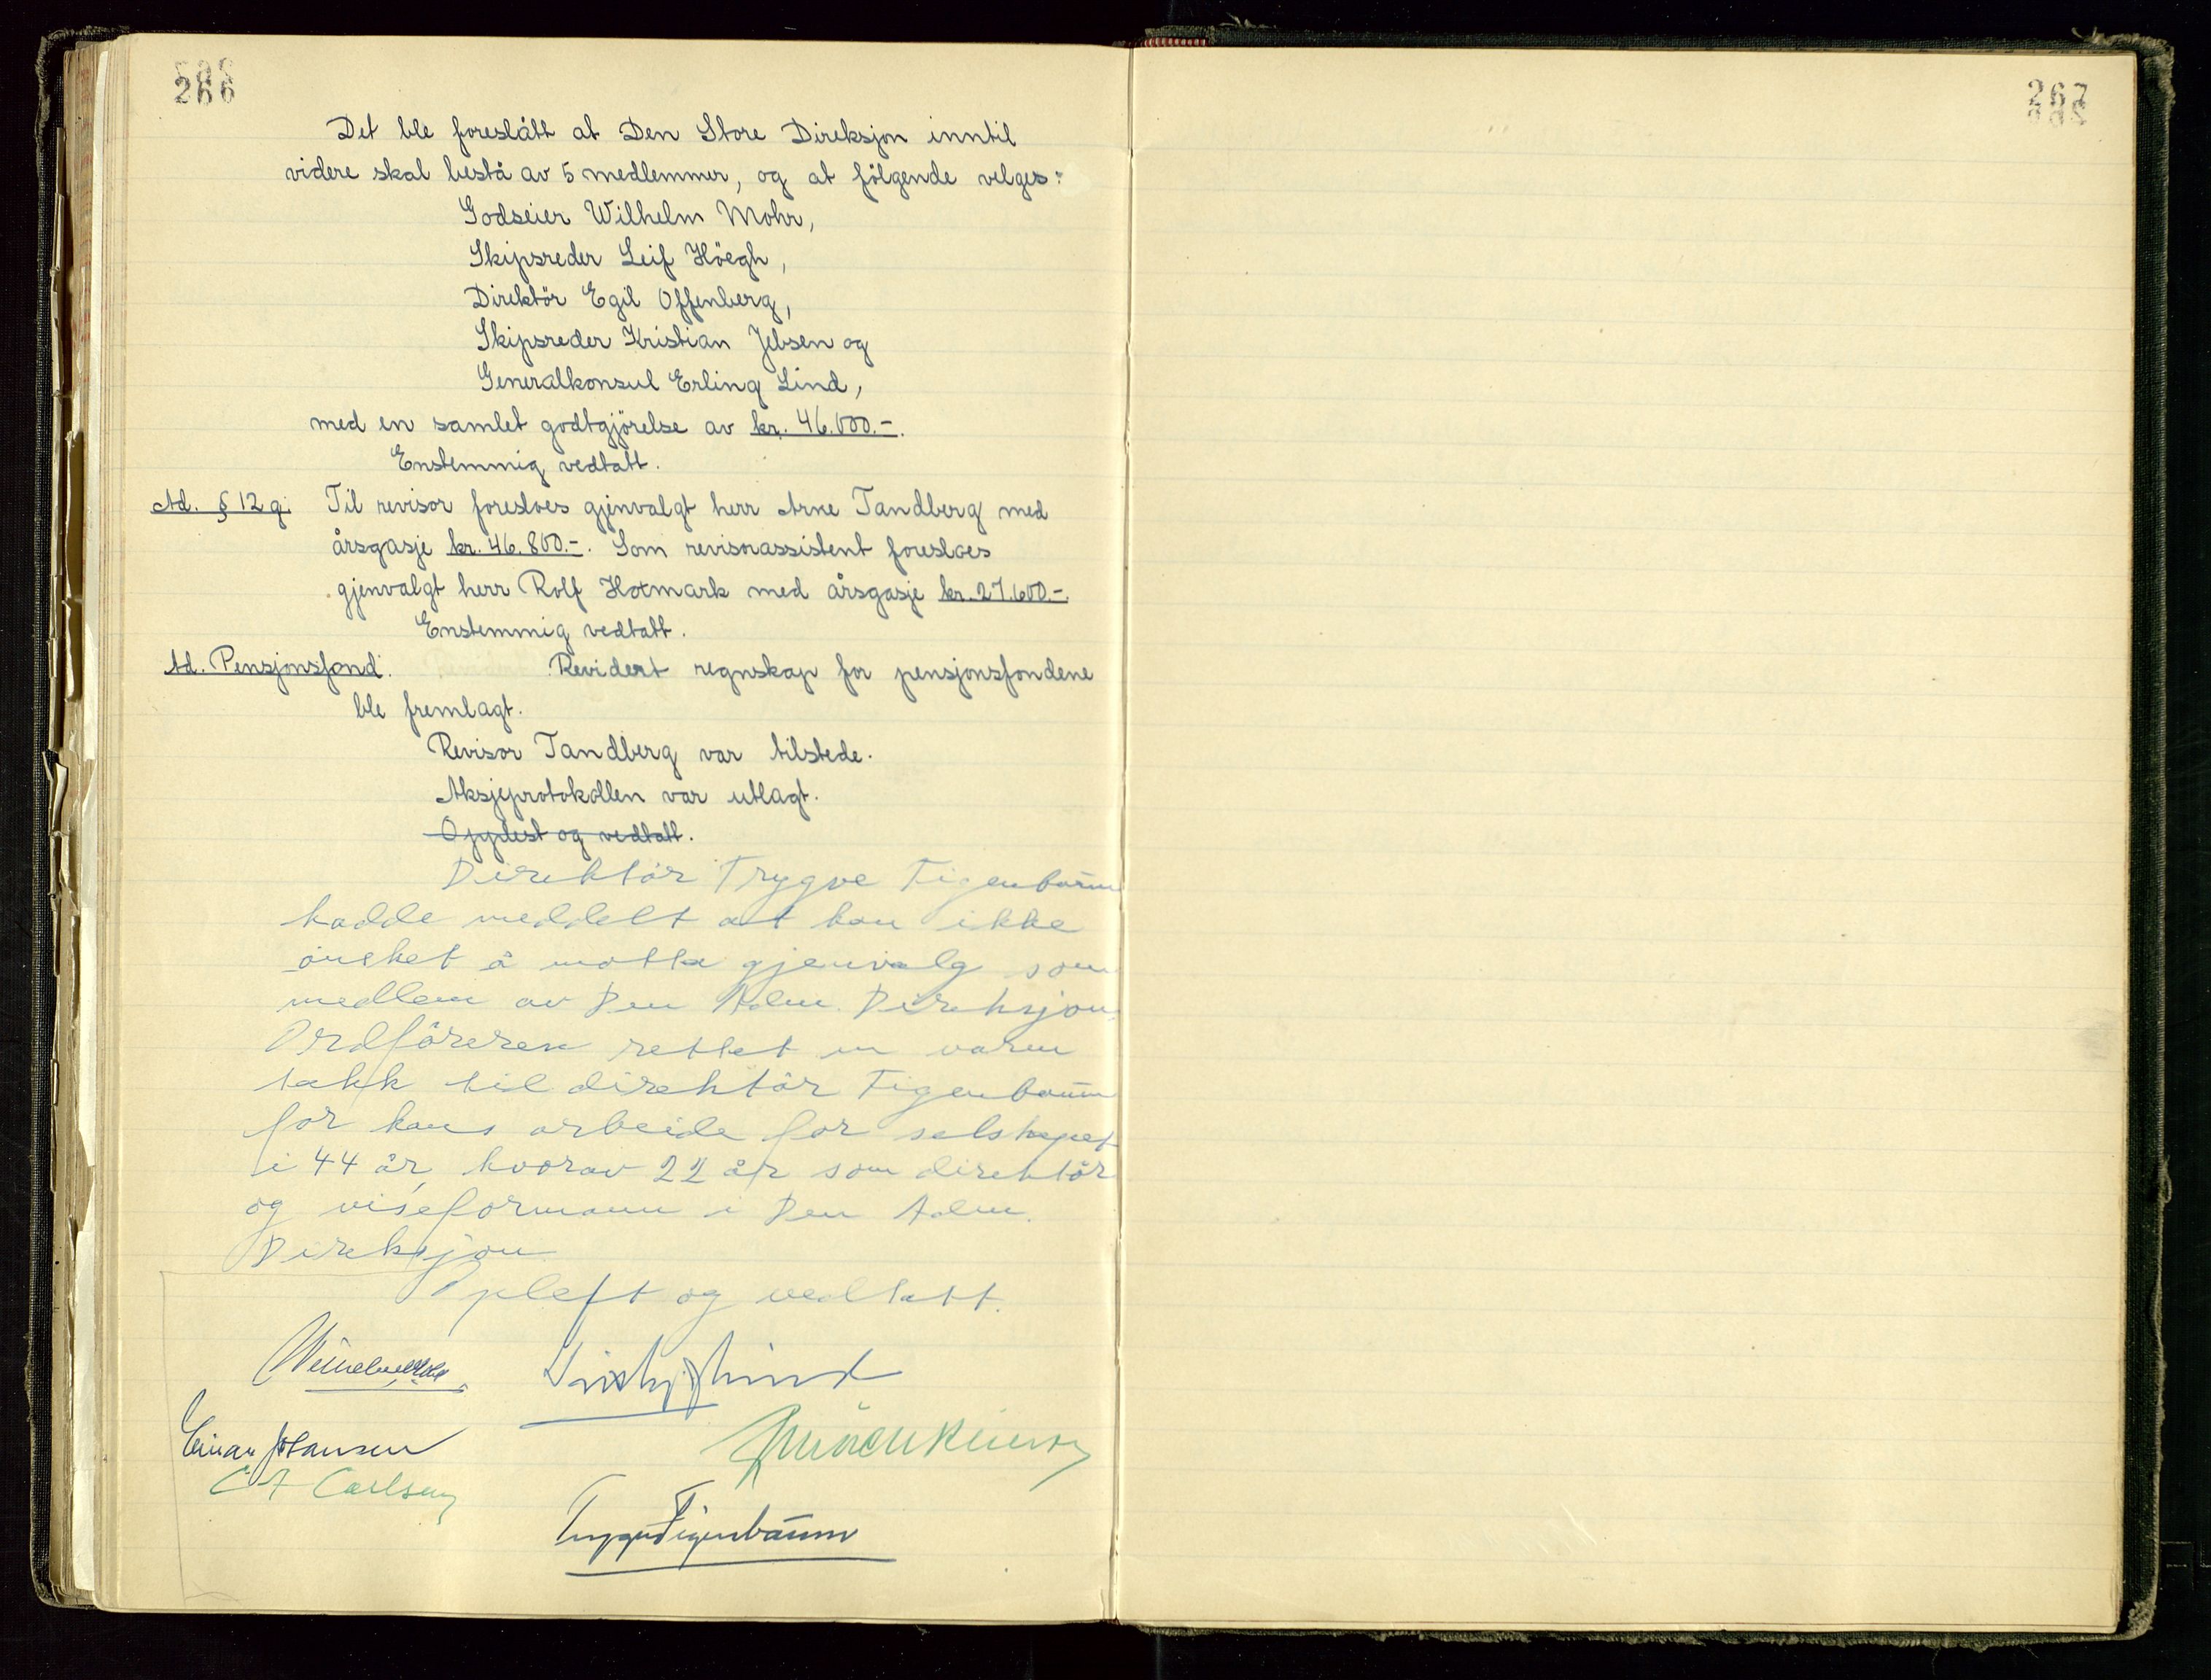 266
267
Det ble foreslått at Den Store Direksjon inntil
videre skal bestå av 5 medlemmer, og at fölgende velges:
Godseier Wilhelm Mohr,
Skipsreder Leif Höegh,
Direktör Egil Offenberg,
Skipsreder Kristian Jebsen og
Generalkonsul Erling Lind,
med en samlet godtgjörelse av kr. 46.000.-.
Enstemmig vedtatt.
Ad. § 12 g. Til revisor foresloes gjenvalgt herr Arne Tandberg med
årsgasje kr. 46.800.-. Som revisorassistent foresloes
gjenvalgt herr Rolf Hotmark med årsgasje kr. 27.600.-.
Enstemmig vedtatt.
Ad. Pensjonsfond. Revidert regnskap for pensjonsfondene
ble fremlagt.
Revisor Tandberg var tilstede.
Aksjeprotokollen var utlagt.
Opplest og vedtatt.
Direktör Trygve Figenbaum
hadde meddelt at han ikke
önsket å motta gjenvalg som
medlem av Den Adm. Direksjon.
Ordföreren rettet en varm
takk til direktör Figenbaum
for hans arbeide for selskapet
i 44 år, hvorav 22 år som direktör
og viseformann i Den Adm.
Direksjon
Oplest og vedtatt.
Einar Johansen
C A Carlsen
Trygve Figenbaum